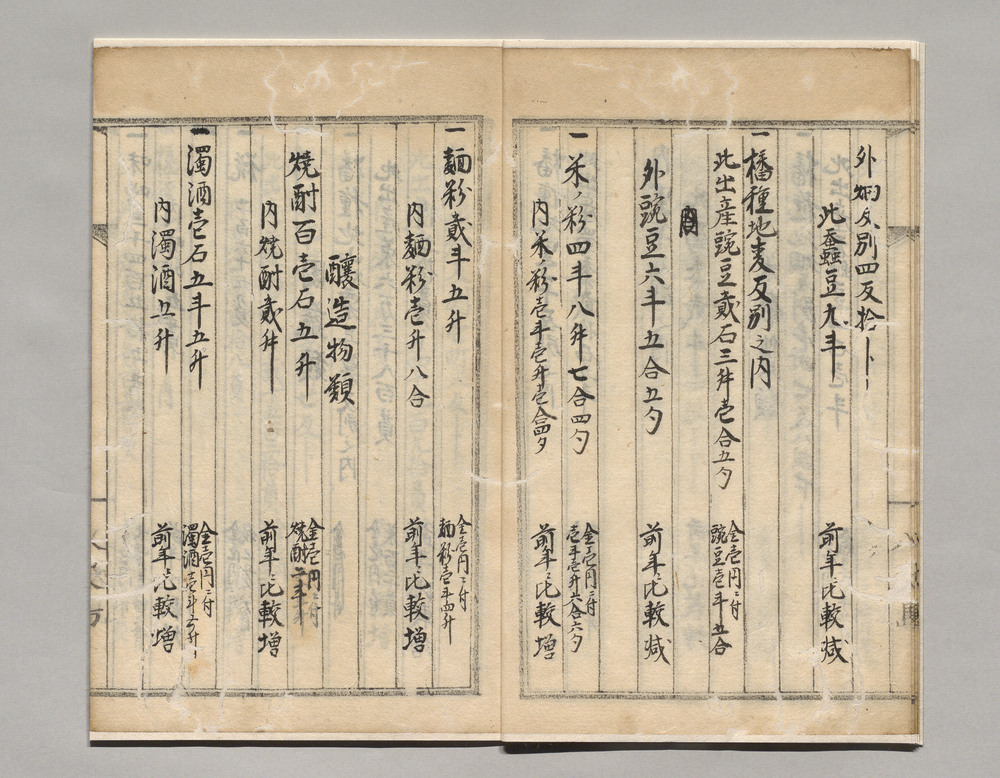 外畑反別四反拾
此蚕豆九斗
前年ニ比較減
一播種地麦反別之内
此出産豌豆貳石三升壱合五勺
金壱円ニ付
豌豆壱斗五合
内
外豌豆六斗五合五勺
前年ニ比較減
一米ノ粉四斗八升七合四勺
金壱円ニ付
壱斗壱升六合六勺
内米ノ粉壱斗壱升壱合四勺
前年ニ比較増
一麺粉貳斗五升
金壱円ニ付
麺粉壱斗四升
内麺粉壱升八合
前年ニ比較増
醸造物類
焼酎百壱石五升
金壱円ニ付
焼酎
内焼酎貳升
前年ニ比較増
一濁酒壱石五斗五升
金壱円ニ付
濁酒壱斗
内濁酒五升
前年ニ比較増